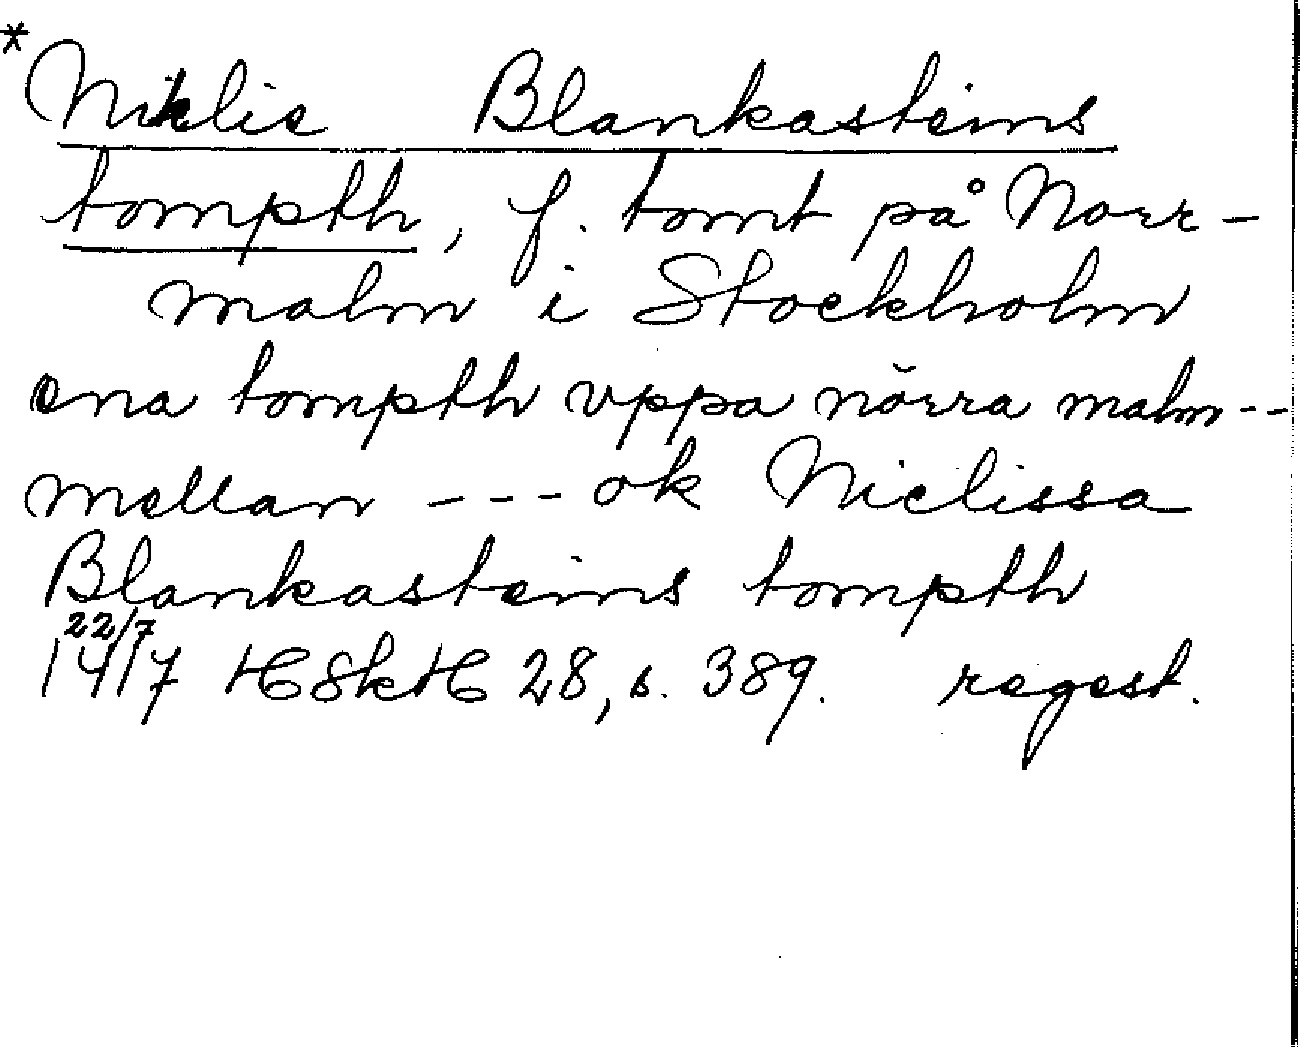 *
Niklis Blankasteins
tompth, f. tomt på Norr-
malm i Stockholm
ena tompth vppa nörra malm--
mellan --- ok Niclissa
Blankasteins tompth
22/7
1417 HSkH 28, s. 389. regest.